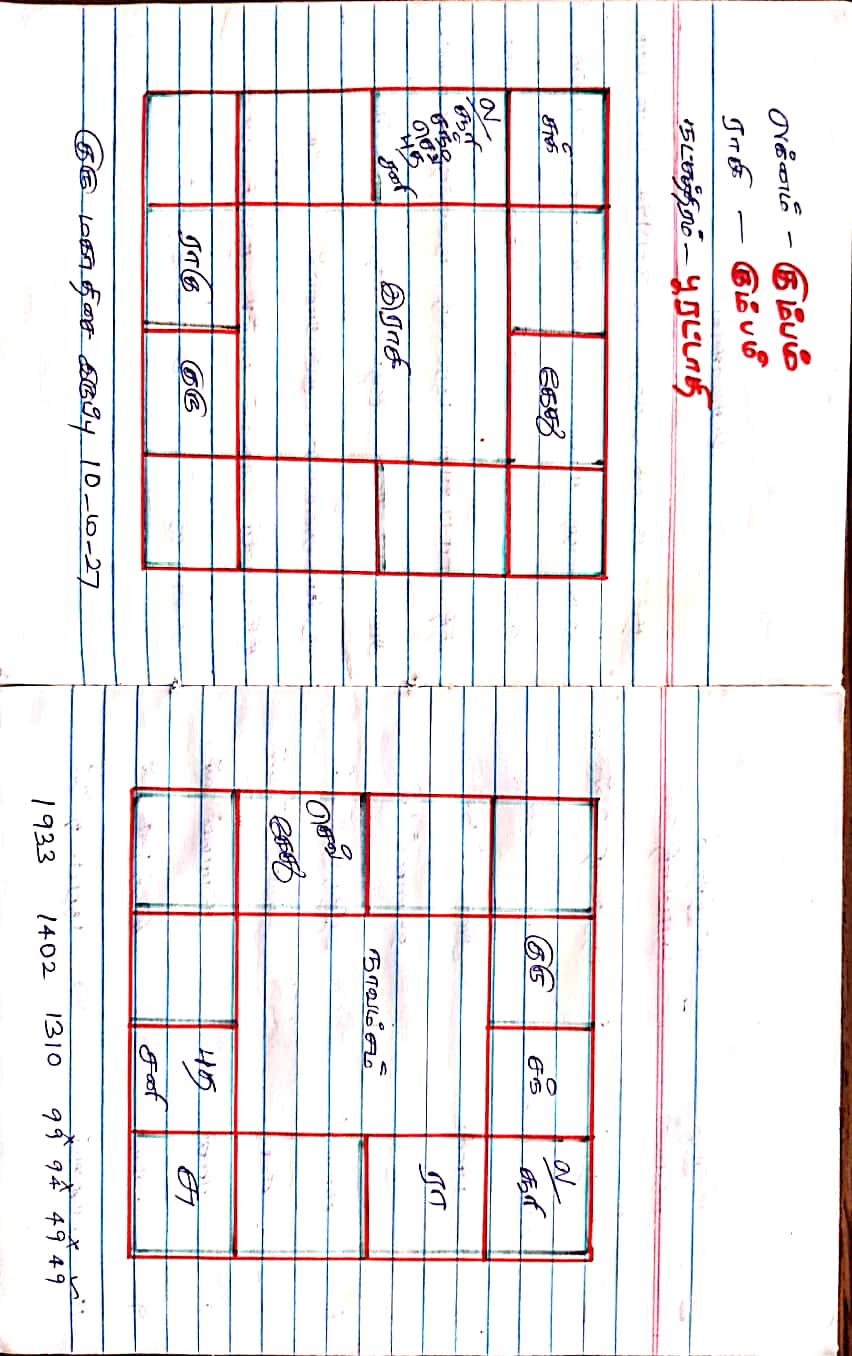 லக்னம் - கும்பம்
ராசி - கும்பம்
நட்சத்திரம் - பூரட்டாதி
சுக்
கேது
ல/
சூரி
சந்
செவ்
புத
சனி
இராசி
ராகு
குரு
குரு மகா திசை இருப்பு 10 - - 27
குரு
சுக்
ல/
சூரி
ரா
நவாம்சம்
செவ்
கேது
புத
சனி
ச
1933 1402 1310 99 94 49 49